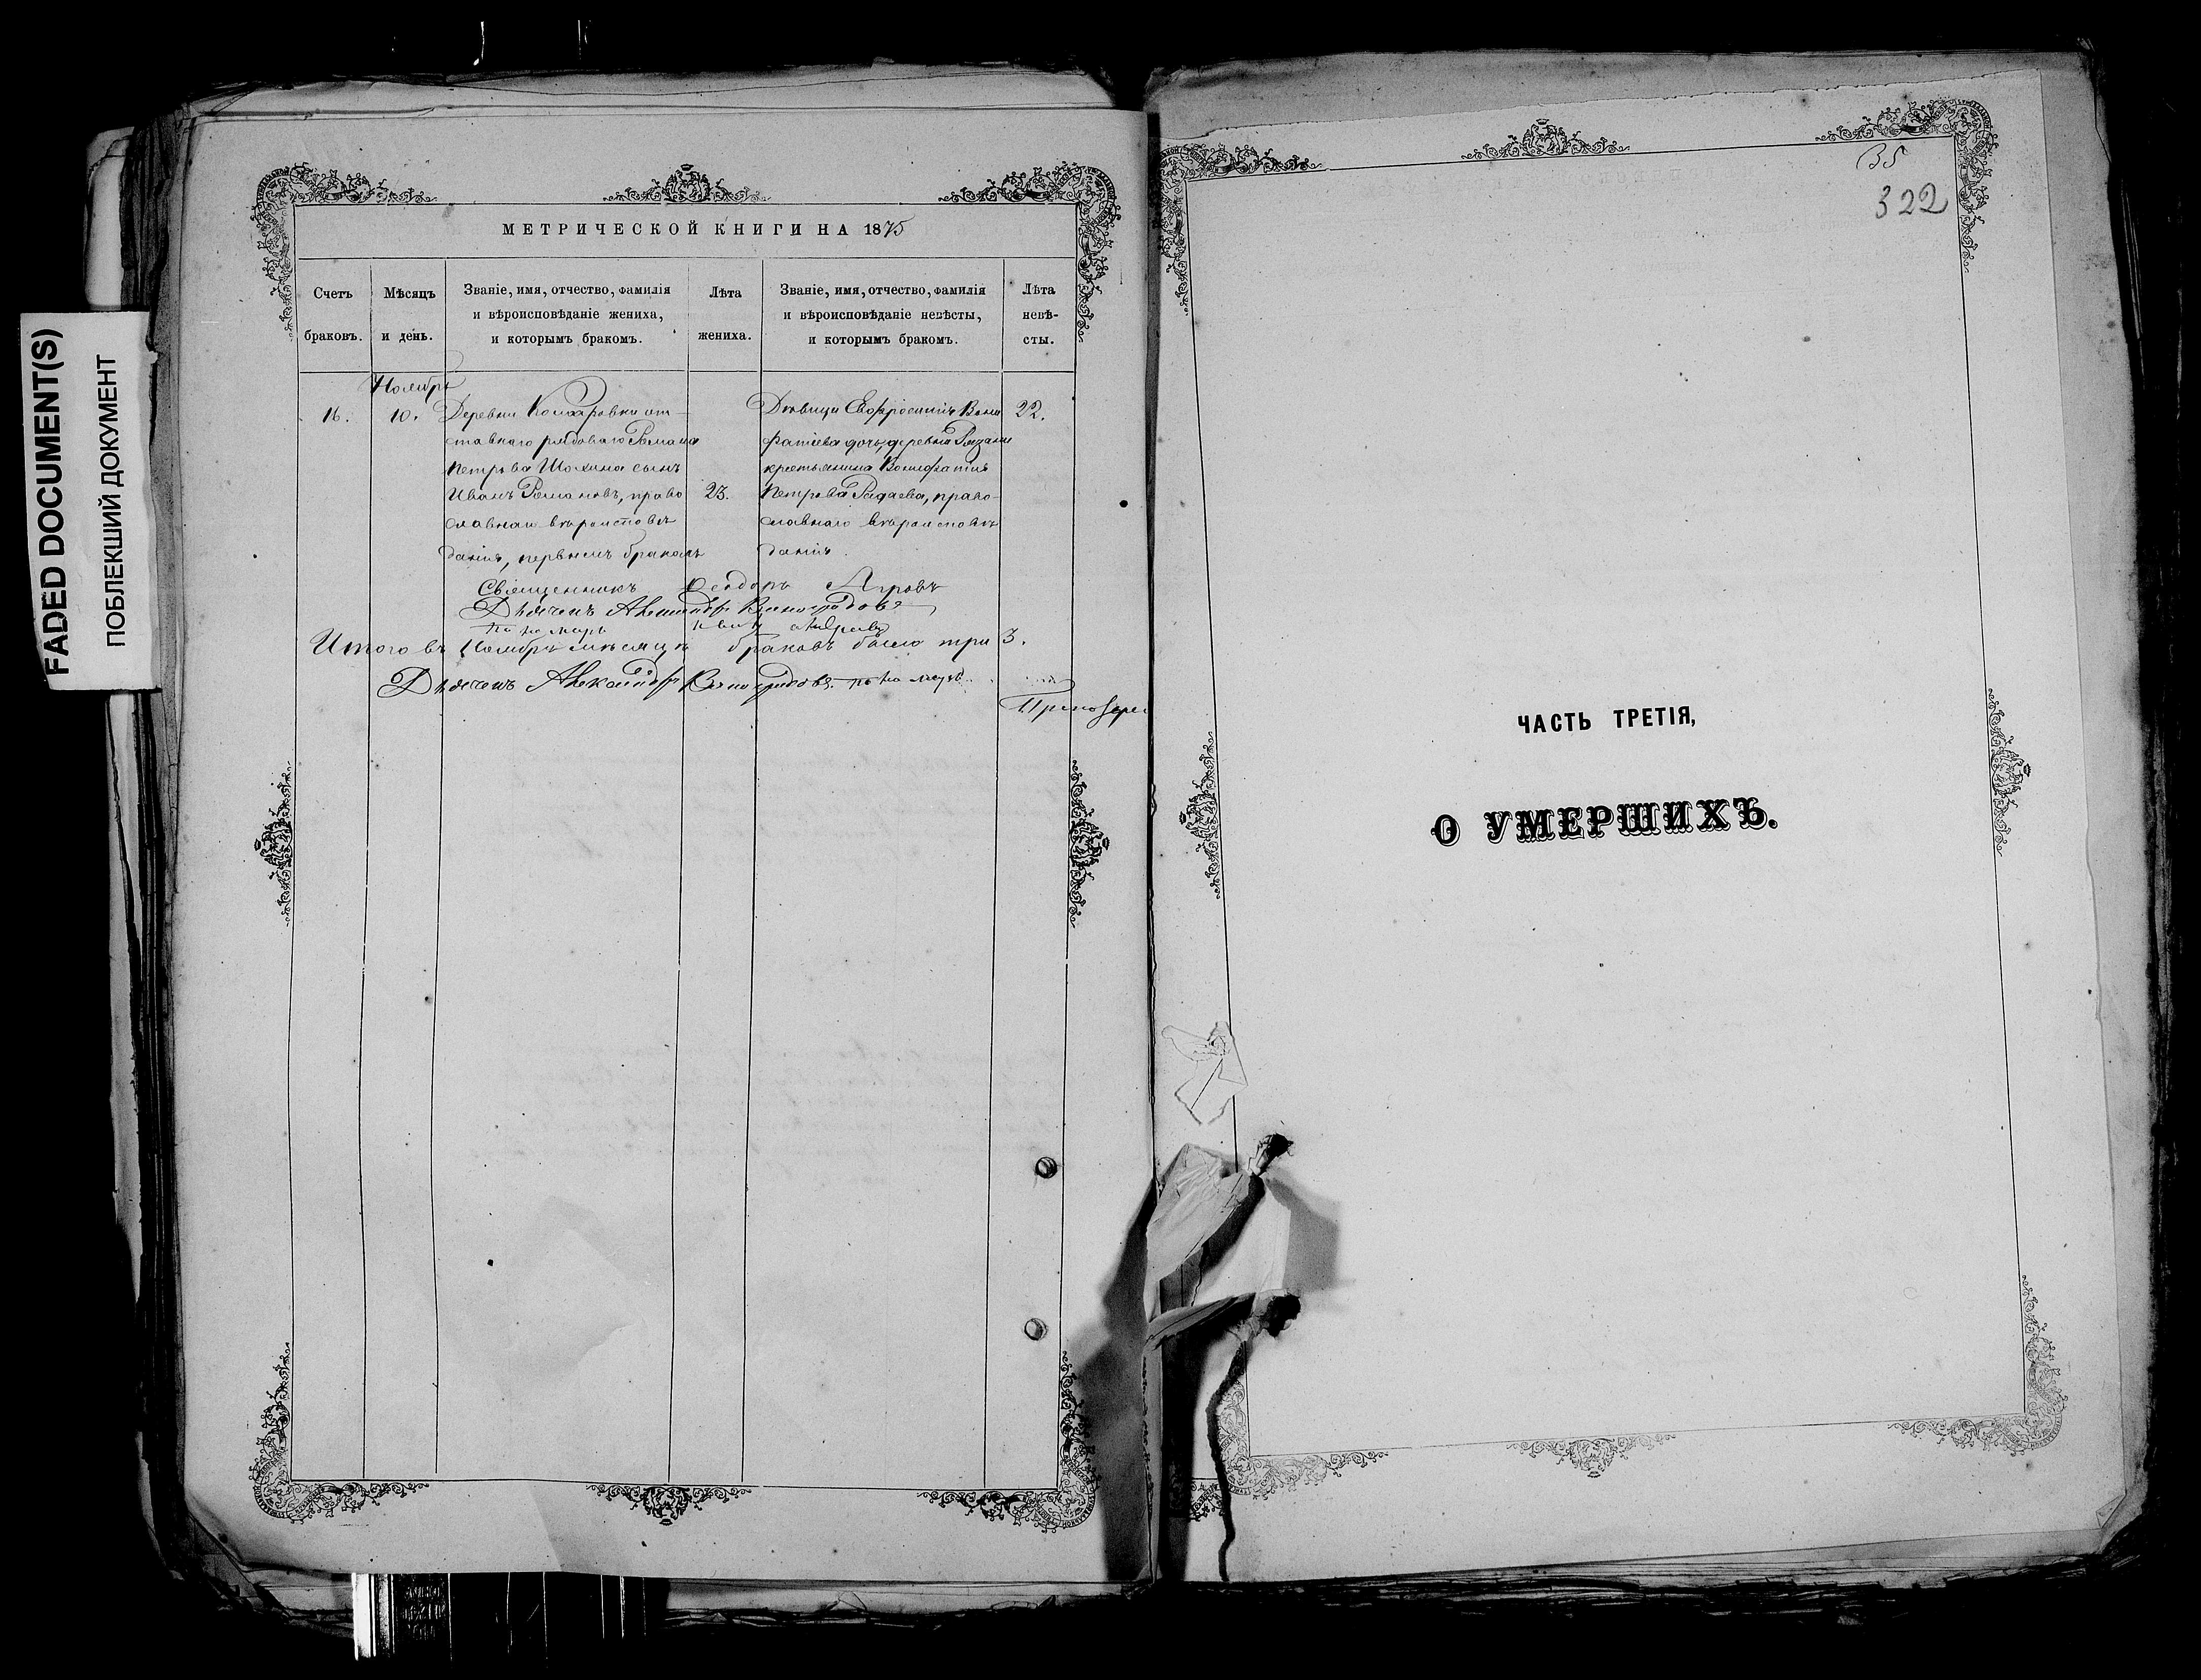 FADED DOCUMENT(S)
ПОБЛЕКШИЙ ДОКУМЕНТ
МЕТРИЧЕСКОЙ КНИГИ НА 1875
Счетъ браковъ.
Мѣсяцъ и день.
Званіе, имя, отчество, фамилія
и вѣроисповѣданіе жениха,
и которымъ бракомъ.
Лѣта жениха.
Званіе, имя, отчество, фамилія
и вѣроисповѣданіе невѣсты,
и которымъ бракомъ.
Лѣта
невѣ-
сты.
Ноябрь
16.
10.
Деревни Комаровки от-
ставнаго рядоваго Романа
Петрова Шохина сынъ
Иванъ Романовъ, право
славнаго вѣроисповѣ
данія, первымъ бракомъ
23.
Дѣвица Евфросинія Вони
фатіева дочь, деревни Рязани
крестьянина Вонифатія
Петрова Радаева, право-
славнаго вѣроисповѣ
данія.
22.
Священникъ Ѳеодоръ
Дьячекъ Александръ Виноградовъ
Пономарь
Итого въ Ноябрѣ мѣсяцѣ браковъ было три 3.
Дьячекъ Александръ Виноградовъ. пономарь
35
322
ЧАСТЬ ТРЕТІЯ,
О УМЕРШИХЪ.